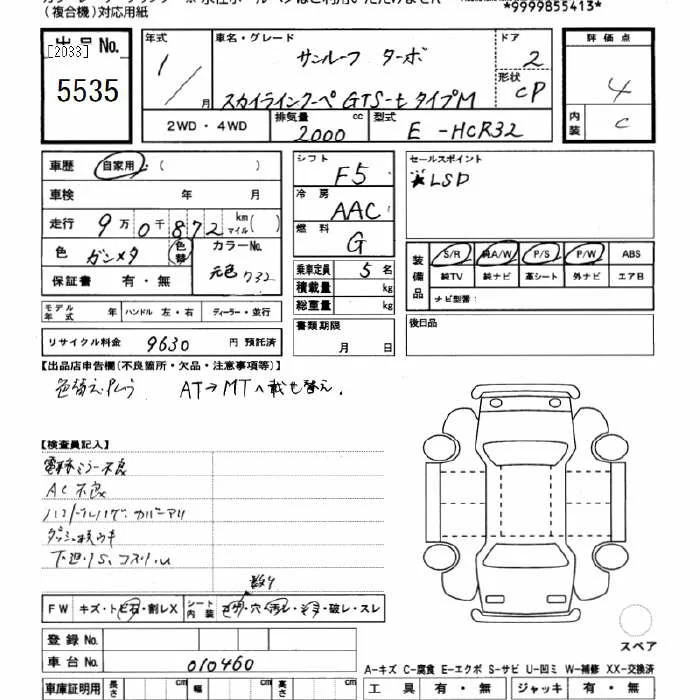 (複合機)対応用紙
*9999855413*
出品No.
[2033]
5535
年式
1/
月
車名・グレード
サンルーフ ターボ
スカイラインクーペ GTS-t タイプM
ドア
2
形状
CP
評価点
4
内装
C
2WD・4WD
排気量
2000
cc
型式
E-HCR32
車歴
自家用
( )
車検
年
月
走行
9万0千872
km
マイル
( )
色
ガンメタ
色替
カラーNo.
元色 732
保証書
有・無
モデル年式
年
ハンドル 左・右
ディーラー・並行
リサイクル料金
9630
円 預託済
シフト
F5
冷房
AAC
燃料
G
乗車定員
5
名
積載量
kg
総重量
kg
書類期限
月
日
セールスポイント
★LSD
装備品
S/R
純A/W
P/S
P/W
ABS
純TV
純ナビ
革シート
外ナビ
エアB
ナビ型番:
後日品
【出品店申告欄(不良箇所・欠品・注意事項等)】
AT→MTへ載せ替え.
【検査員記入】
電格ミラー不良
AC不良
下廻りS、コスリ
FW
キズ・トビ石・割レX
シート内装
コゲ・穴・汚レ・シミ・破レ・スレ
登録No.
車台No.
010460
車庫証明用
長さ
cm
幅
cm
高さ
cm
スペア
A-キズ C-腐食 E-エクボ S-サビ U-凹ミ W-補修 XX-交換済
工具
有・無
ジャッキ
有・無